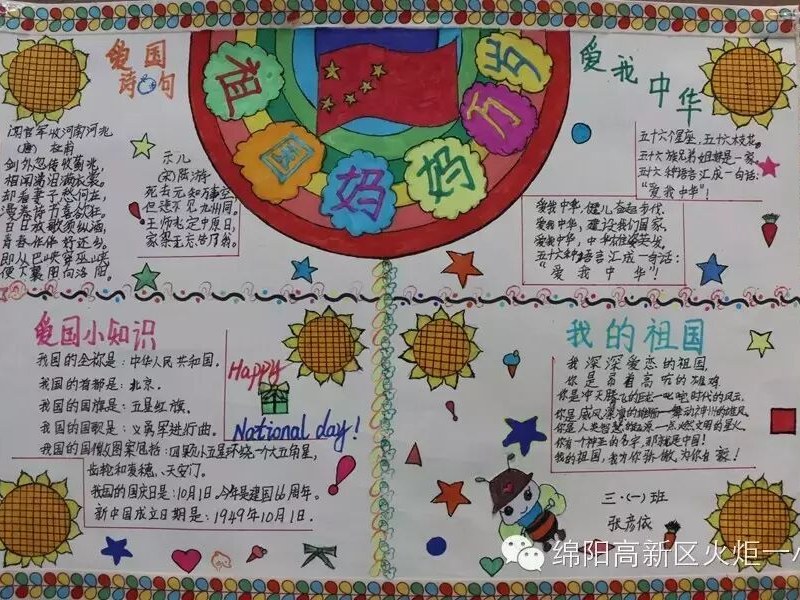 爱国
诗句
闻官军收河南河北
(唐) 杜甫
剑外忽传收蓟北,
初闻涕泪满衣裳。
却看妻子愁何在,
漫卷诗书喜欲狂。
白日放歌须纵酒,
青春作伴好还乡。
即从巴峡穿巫峡,
便下襄阳向洛阳。
示儿
(宋)陆游
死去元知万事空
但悲不见九州同。
王师北定中原日,
家祭无忘告乃翁。
祖国妈妈万岁
爱我中华
五十六个星座,五十六枝花。
五十六族兄弟姐妹是一家。
五十六种语言汇成一句话:
“爱我中华!”
爱我中华,健儿奋起步伐.
爱我中华,建设我们国家.
爱我中华,中华雄姿英发.
五十六种语言汇成一句话:
“爱我中华”!
爱国小知识
我国的全称是:中华人民共和国.
我国的首都是:北京.
我国的国旗是:五星红旗.
我国的国歌是:义勇军进行曲.
我国的国徽图案包括:四颗小五星环绕一个大五角星,
齿轮和麦穗、天安门。
我国的国庆日是:10月1日.今年是建国66周年.
新中国成立日期是:1949年10月1日.
Happy
National day!
我的祖国
我深深爱恋的祖国.
你是昂着高吭的雄鸡
你是冲天腾飞的巨龙—叱咤时代的风云.
你是威风凛凛的雄狮—舞动神州的雄风.
你是人类智慧的起源—点燃文明的星火.
你有个神圣的名字,那就是中国!
我的祖国,我为你骄傲,为你自豪!
三·(一)班
张彦依
绵阳高新区火炬一小